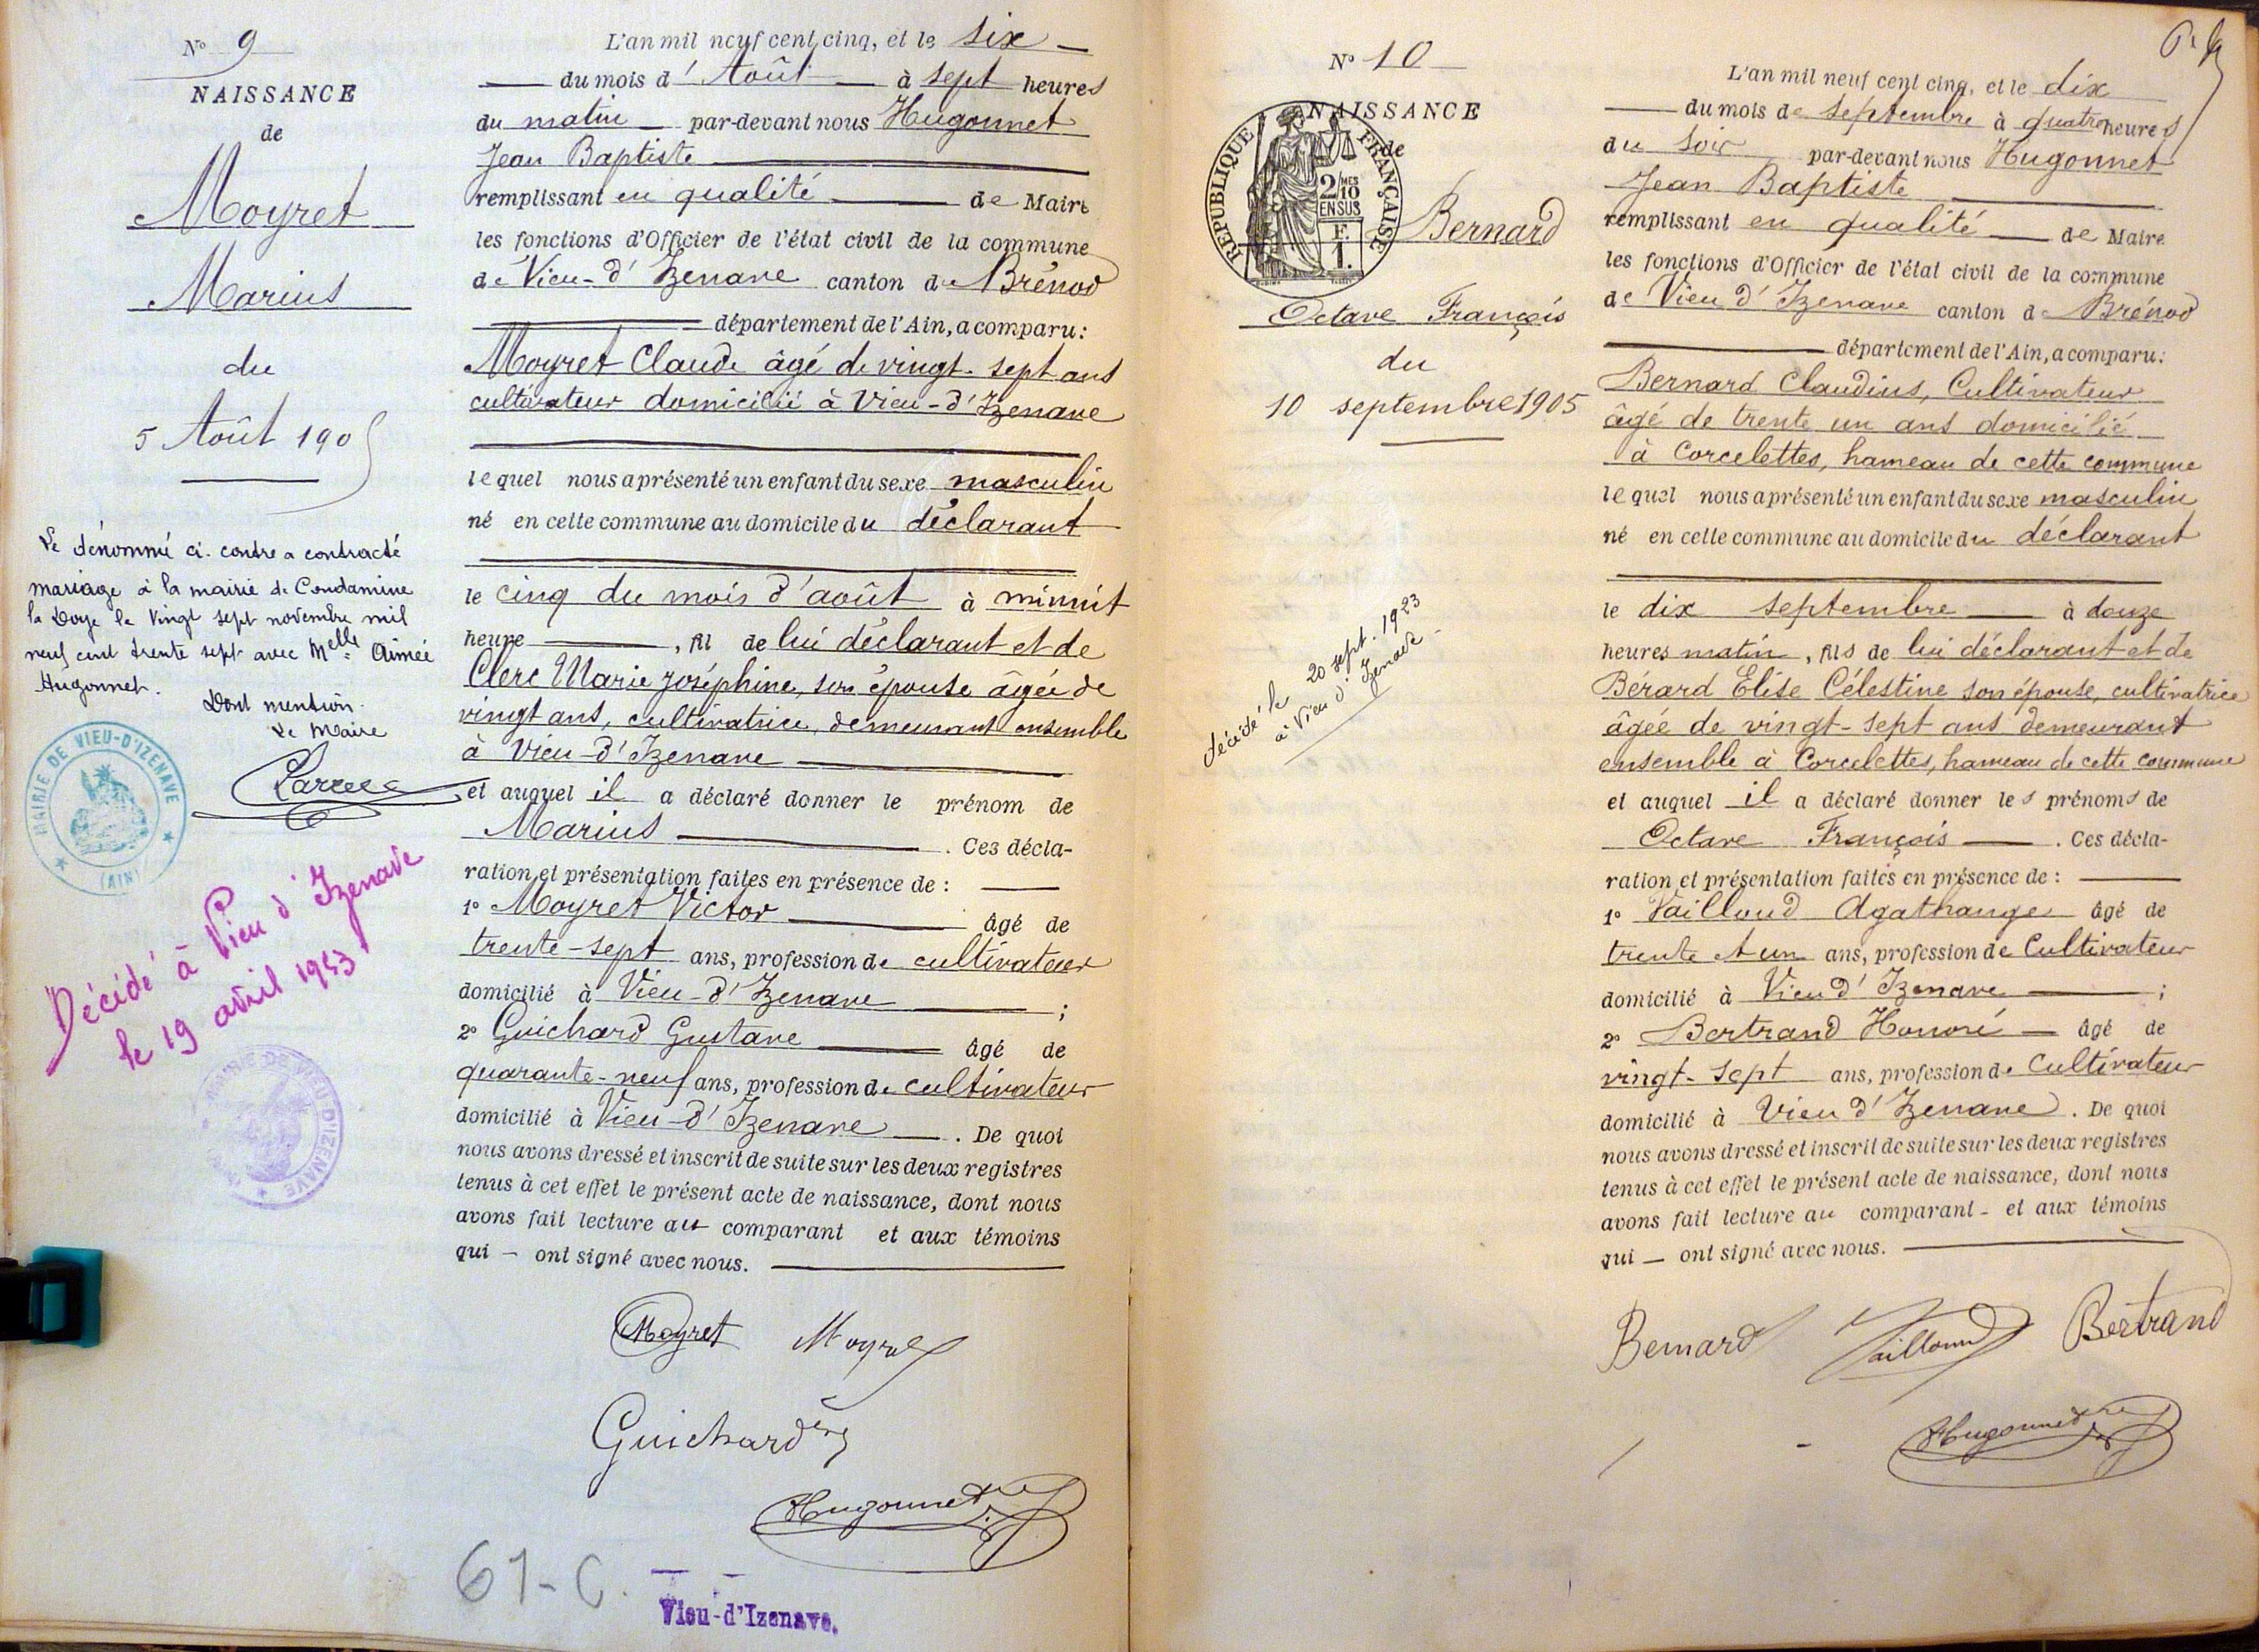 N° 9
NAISSANCE
de
Moyret
Marius
du
5 Août 1905
Le dénommé ci-contre a contracté
mariage à la mairie de Condamine
la Doye le Vingt sept novembre mil
neuf cent trente sept avec Melle Aimée
Hugonnet.
Dont mention.
Le Maire
MAIRIE DE VIEU-D'IZENAVE
(AIN)
Décédé à Vieu d'Izenave
le 19 avril 1953
MAIRIE DE VIEU-D'IZENAVE
L'an mil neuf cent cinq, et le six
du mois d'Août à sept heures
du matin par-devant nous Hugonnet
Jean Baptiste
remplissant en qualité de Maire
les fonctions d'Officier de l'état civil de la commune
de Vieu-d'Izenave canton de Brénod
département de l'Ain, a comparu :
Moyret Claude âgé de vingt-sept ans
cultivateur domicilié à Vieu-d'Izenave
lequel nous a présenté un enfant du sexe masculin
né en cette commune au domicile du déclarant
le cinq du mois d'août à minuit
heure , fil de lui déclarant et de
Clerc Marie Joséphine, son épouse âgée de
vingt ans, cultivatrice, demeurant ensemble
à Vieu-d'Izenave
et auquel il a déclaré donner le prénom de
Marius . Ces décla-
ration et présentation faites en présence de :
1° Moyret Victor âgé de
trente-sept ans, profession de cultivateur
domicilié à Vieu-d'Izenave ;
2° Guichard Gustave âgé de
quarante-neuf ans, profession de cultivateur
domicilié à Vieu-d'Izenave . De quoi
nous avons dressé et inscrit de suite sur les deux registres
tenus à cet effet le présent acte de naissance, dont nous
avons fait lecture au comparant et aux témoins
qui – ont signé avec nous.
Moyret Moyret
Guichard
Hugonnet
61-C.
Vieu-d'Izenave.
N° 10
NAISSANCE
de
RÉPUBLIQUE FRANÇAISE
2/10 MES
EN SUS
F.
1.
Bernard
Octave François
du
10 septembre 1905
décédé le 20 sept. 1923
à Vieu d'Izenave
L'an mil neuf cent cinq, et le dix
du mois de septembre à quatre heures
du soir par-devant nous Hugonnet
Jean Baptiste
remplissant en qualité de Maire
les fonctions d'Officier de l'état civil de la commune
de Vieu d'Izenave canton de Brénod
département de l'Ain, a comparu :
Bernard Claudius, Cultivateur
âgé de trente un ans domicilié
à Corcelettes, hameau de cette commune
lequel nous a présenté un enfant du sexe masculin
né en cette commune au domicile du déclarant
le dix septembre à douze
heures matin , fils de lui déclarant et de
Bérard Elise Célestine son épouse, cultivatrice
âgée de vingt-sept ans demeurant
ensemble à Corcelettes, hameau de cette commune
et auquel il a déclaré donner les prénoms de
Octave François . Ces décla-
ration et présentation faites en présence de :
1° Vailloud Agathange âgé de
trente et un ans, profession de Cultivateur
domicilié à Vieu d'Izenave ;
2° Bertrand Honoré âgé de
vingt-sept ans, profession de Cultivateur
domicilié à Vieu d'Izenave . De quoi
nous avons dressé et inscrit de suite sur les deux registres
tenus à cet effet le présent acte de naissance, dont nous
avons fait lecture au comparant - et aux témoins
qui – ont signé avec nous.
Bernard Vailloud Bertrand
Hugonnet